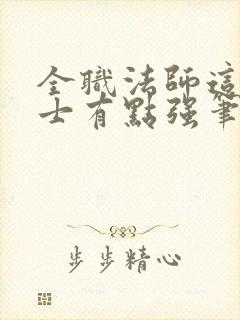 全職法師這
士有點强筆
步步精心